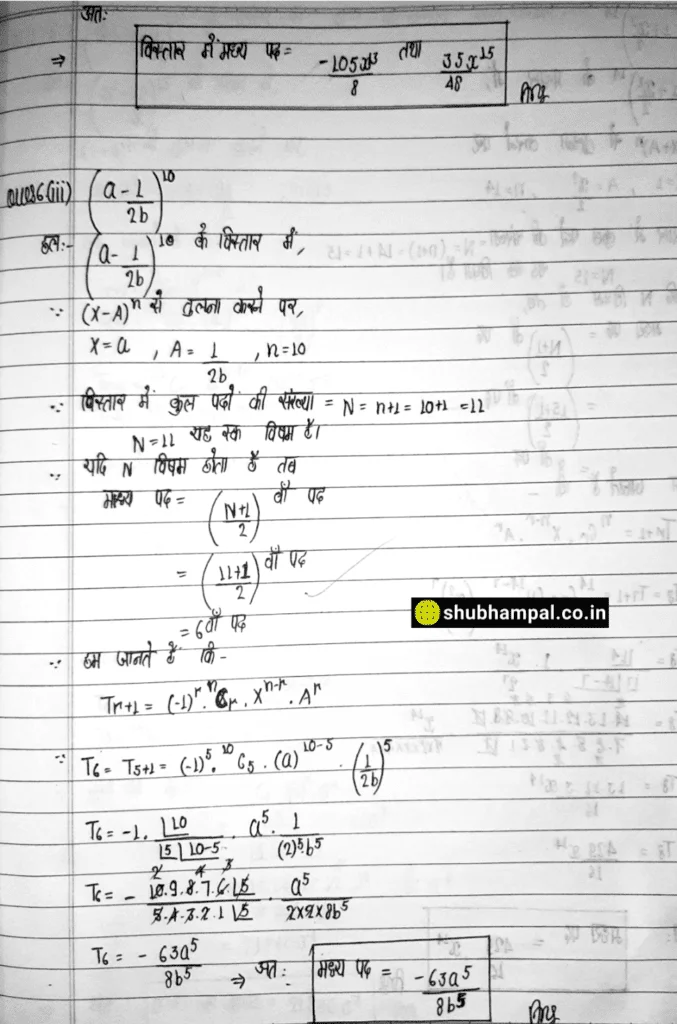 अतः
⇒ विस्तार में मध्य पद = -105x¹³/8 तथा 35x¹⁵/48 Ans
Ques6(iii) (a - 1/2b)¹⁰
हलः- (a - 1/2b)¹⁰ के विस्तार में,
∵ (x-A)ⁿ से तुलना करने पर,
x = a , A = 1/2b , n=10
∵ विस्तार में कुल पदों की संख्या = N = n+1 = 10+1 = 11
N = 11 यह एक विषम है।
∵ यदि N विषम होता है तब
मध्य पद = (N+1/2) वाँ पद
= (11+1/2) वाँ पद
= 6वाँ पद
shubhampal.co.in
∵ हम जानते हैं कि -
Tr+1 = (-1)ʳ . ⁿCr . Xⁿ⁻ʳ . Aʳ
∵ T6 = T5+1 = (-1)⁵ . ¹⁰C5 . (a)¹⁰⁻⁵ . (1/2b)⁵
T6 = -1 . |10/|5 |10-5 . a⁵ . 1/(2)⁵b⁵
T6 = - 10.9.8.7.6.|5/5.4.3.2.1 |5 . a⁵/2×2×8b⁵
T6 = - 63a⁵/8b⁵ ⇒ अतः मध्य पद = -63a⁵/8b⁵ Ans